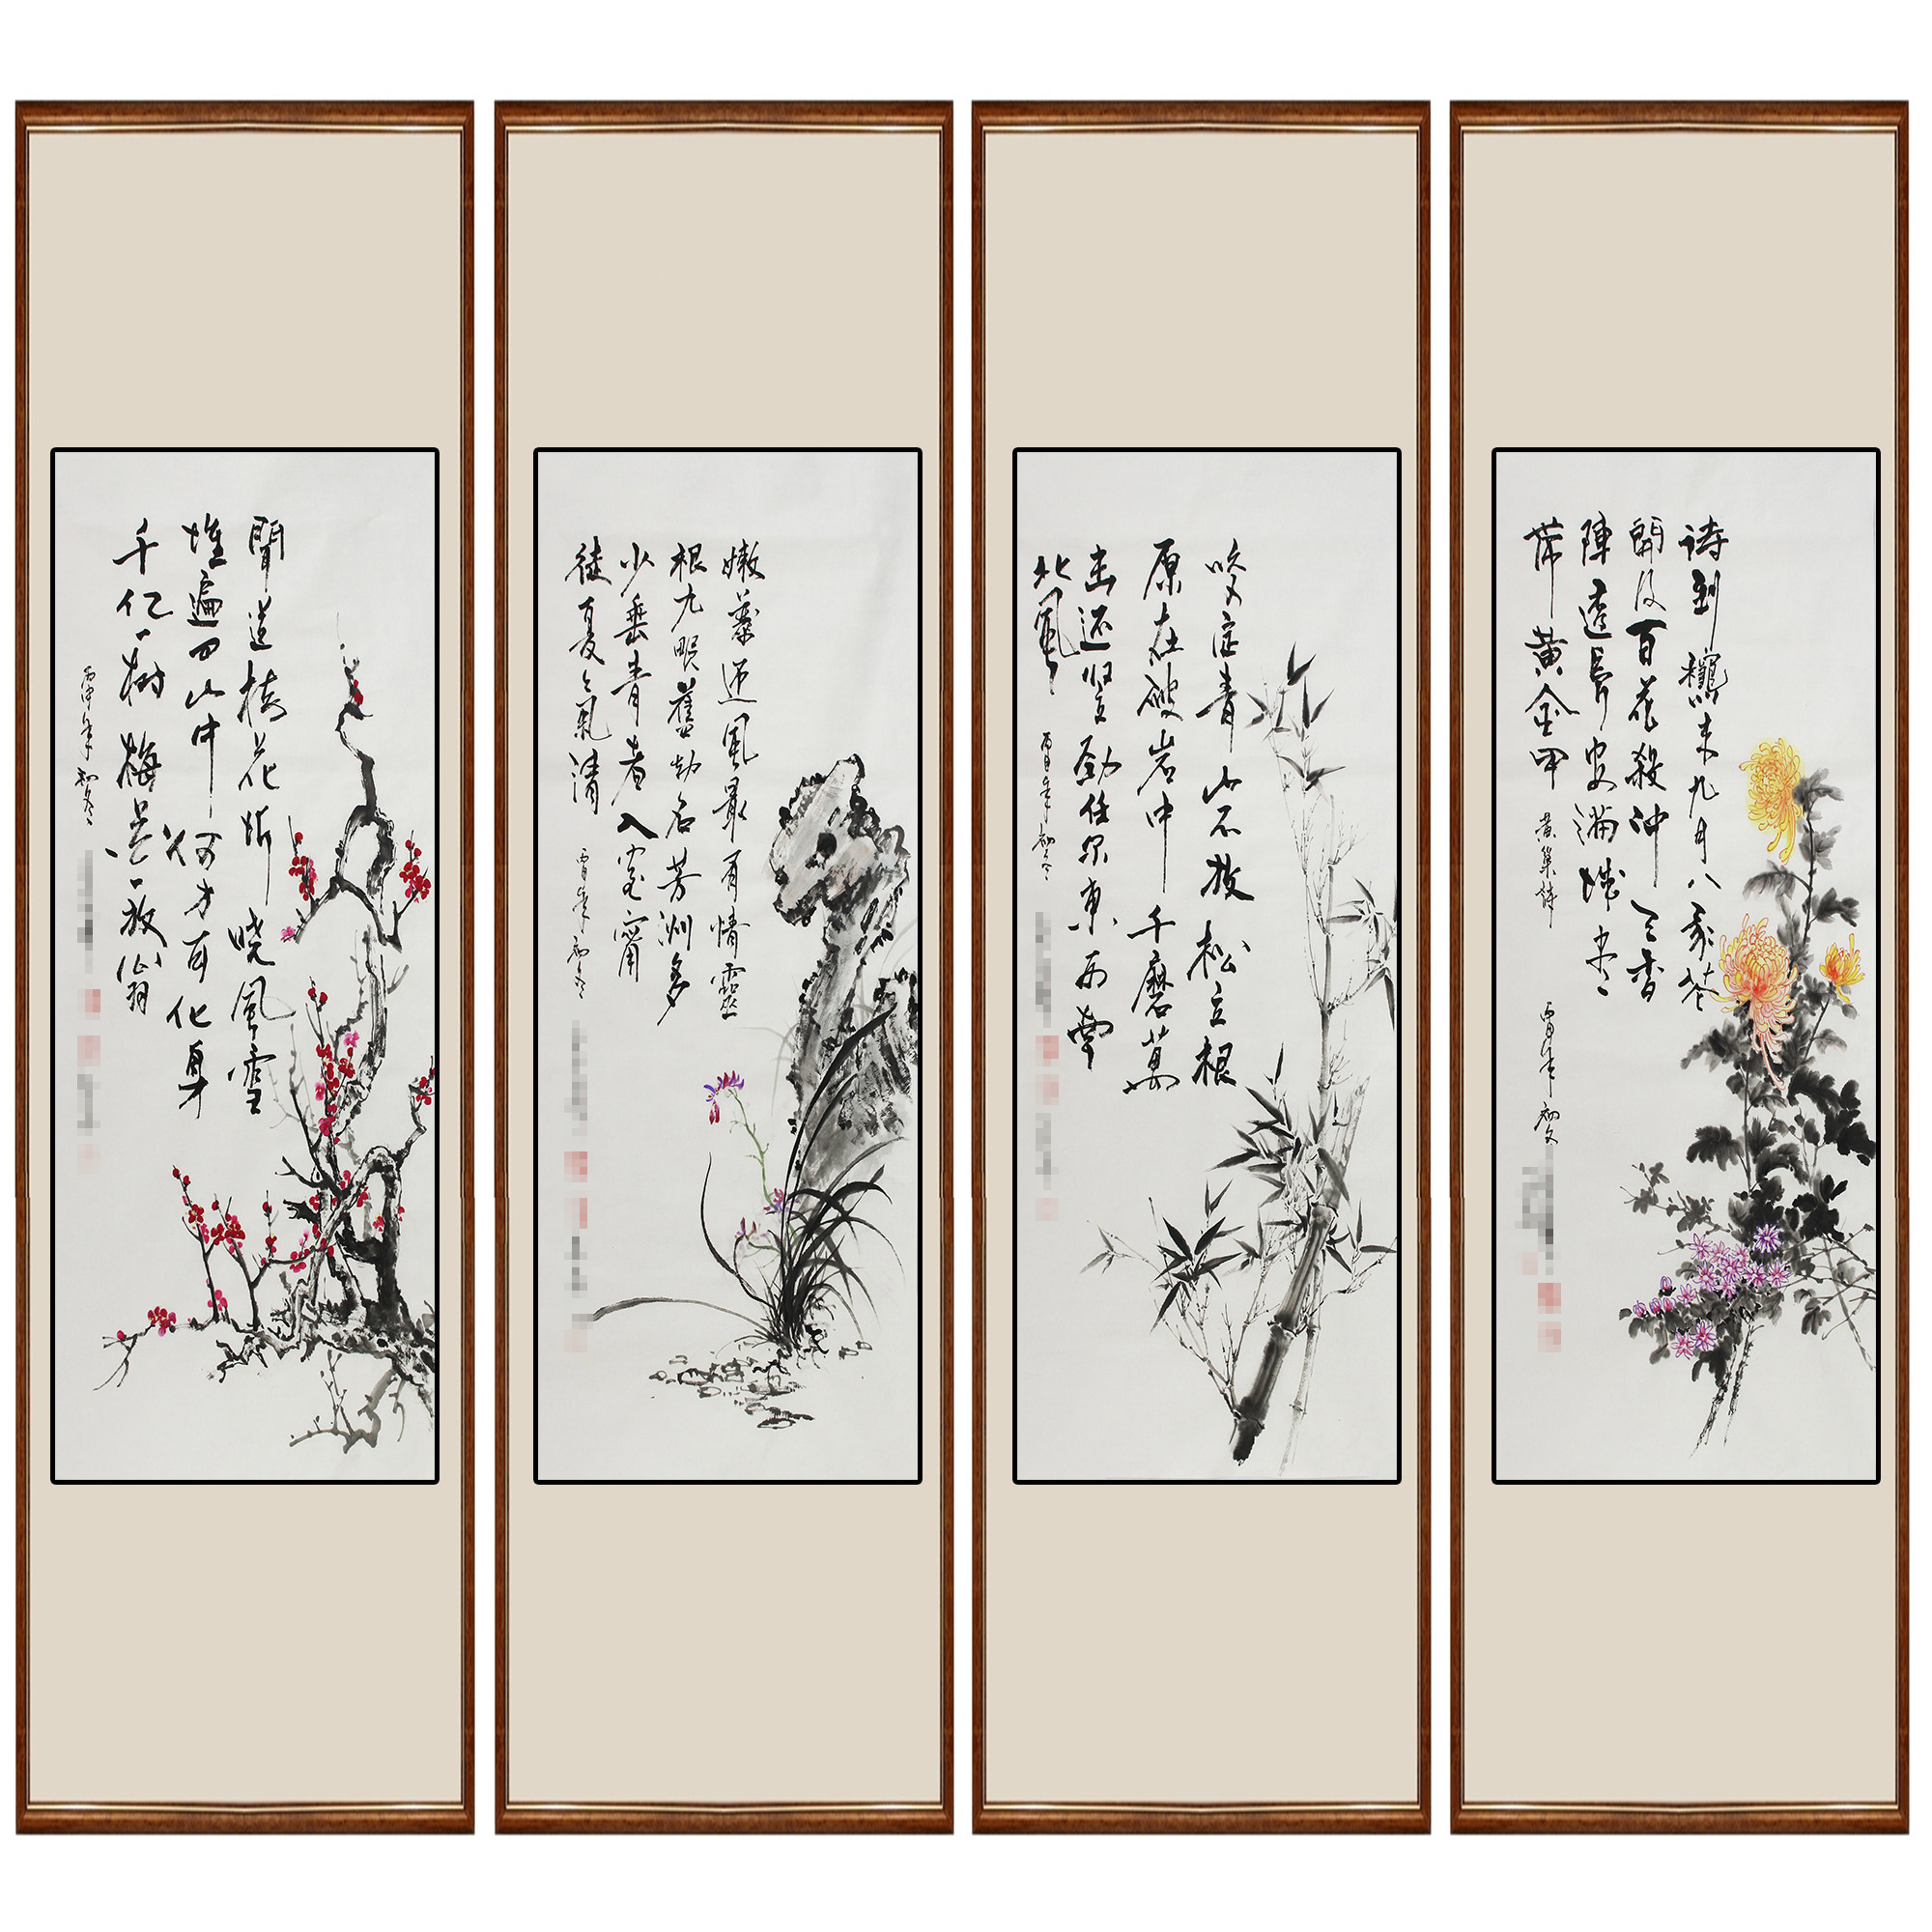 聞道梅花坼晓風雪
堆遍四山中何方可化身
千亿一樹梅花一放翁
丙申年初冬
嫩蕊迎風最有情靈
根九畹舊幼名芳洲多
少垂青者入室
徒夏氣清
丙申年初冬
咬定青山不放松立根
原在破岩中千磨萬
击还坚劲任尔東西南
北風
丙申年初冬
待到龝來九月八我花
開後百花殺沖天香
陣透長安滿城尽
带黃金甲
黄巢诗
丙申年初冬